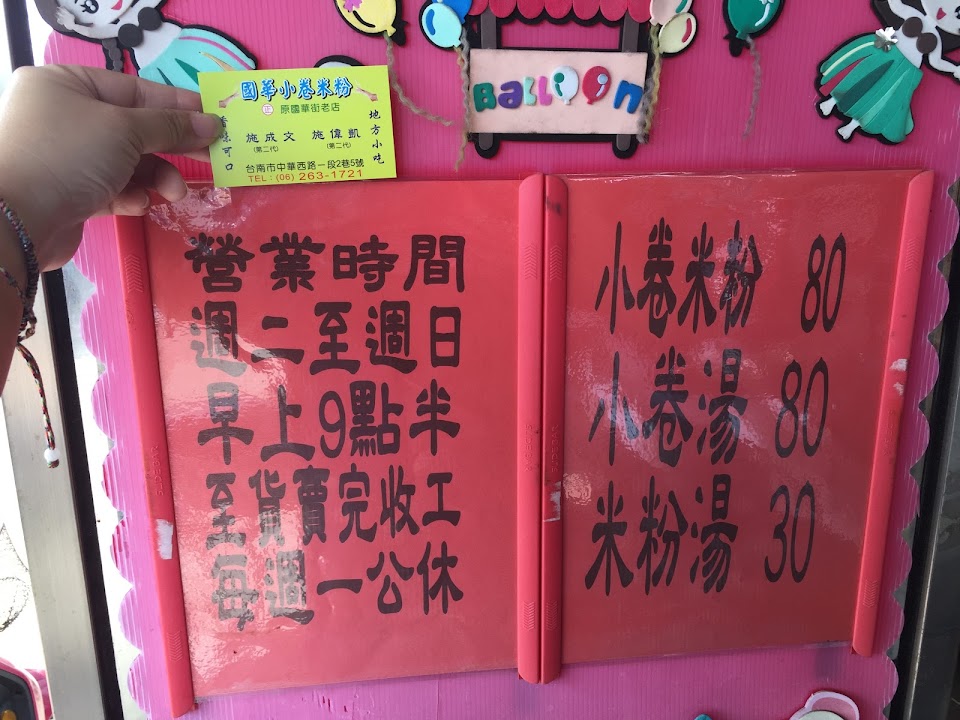 國華小卷米粉
正 原國華街老店
香味可口
施成文 施偉凱
(第二代) (第二代)
地方小吃
台南市中華西路一段2巷5號
TEL:(06) 263-1721
BaLLOOn
營業時間
週二至週日
早上9點半
至貨賣完收工
每週一公休
小卷米粉 80
小卷湯 80
米粉湯 30